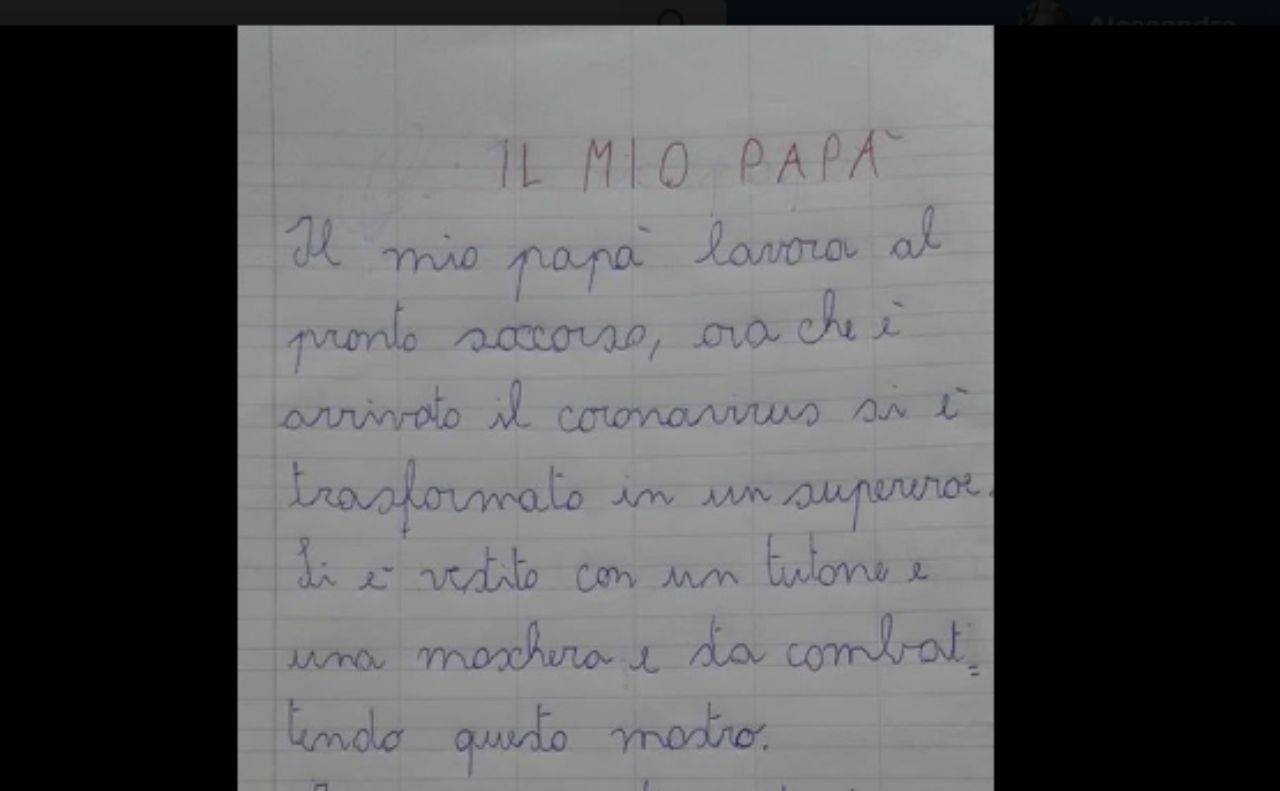 Alessandro
IL MIO PAPÀ
Il mio papà lavora al
pronto soccorso, ora che è
arrivato il coronavirus si è
trasformato in un supereroe.
Si è vestito con un tutone e
una maschera e sta combat=
tendo questo mostro.